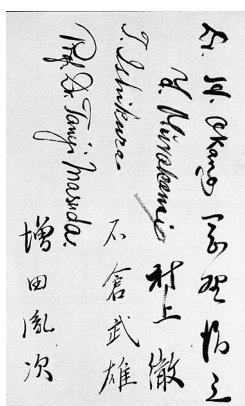 Dr. H. Okano
Murakami 村上 徹
T. Ishikura 石倉武雄
Prof. Dr. Masuda. 増田胤次